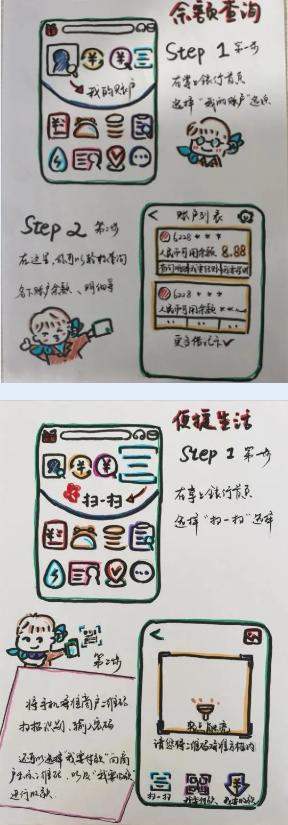 余额查询
Step 1 第一步
在掌上银行首页
选择“我的账户”选项
我的账户
Step 2 第二步
在这里,您可以轻松查询
名下账户余额、明细等
账户列表
6228 * * *
人民币可用余额 8.88
6228 * * *
人民币可用余额 *.**
更多借记卡
便捷生活
Step 1 第一步
在掌上银行首页
选择“扫一扫”选择
扫一扫
第二步
将手机对准商户二维码
扫描识别,输入密码
还可以选择“我要付款”向商
户出示二维码,以及“我要收款”
进行收款.
轻点照亮
请您将二维码对准方框内
扫一扫
我要付款
我要收款